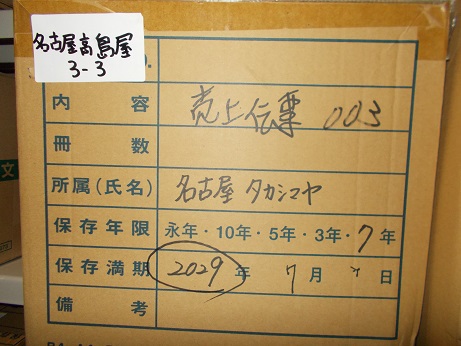 名古屋高島屋
3-3
内容 売上伝票 003
冊数
所属(氏名) 名古屋 タカシマヤ
保存年限 永年・10年・5年・3年・7年
保存満期 2029年 7月 日
備考